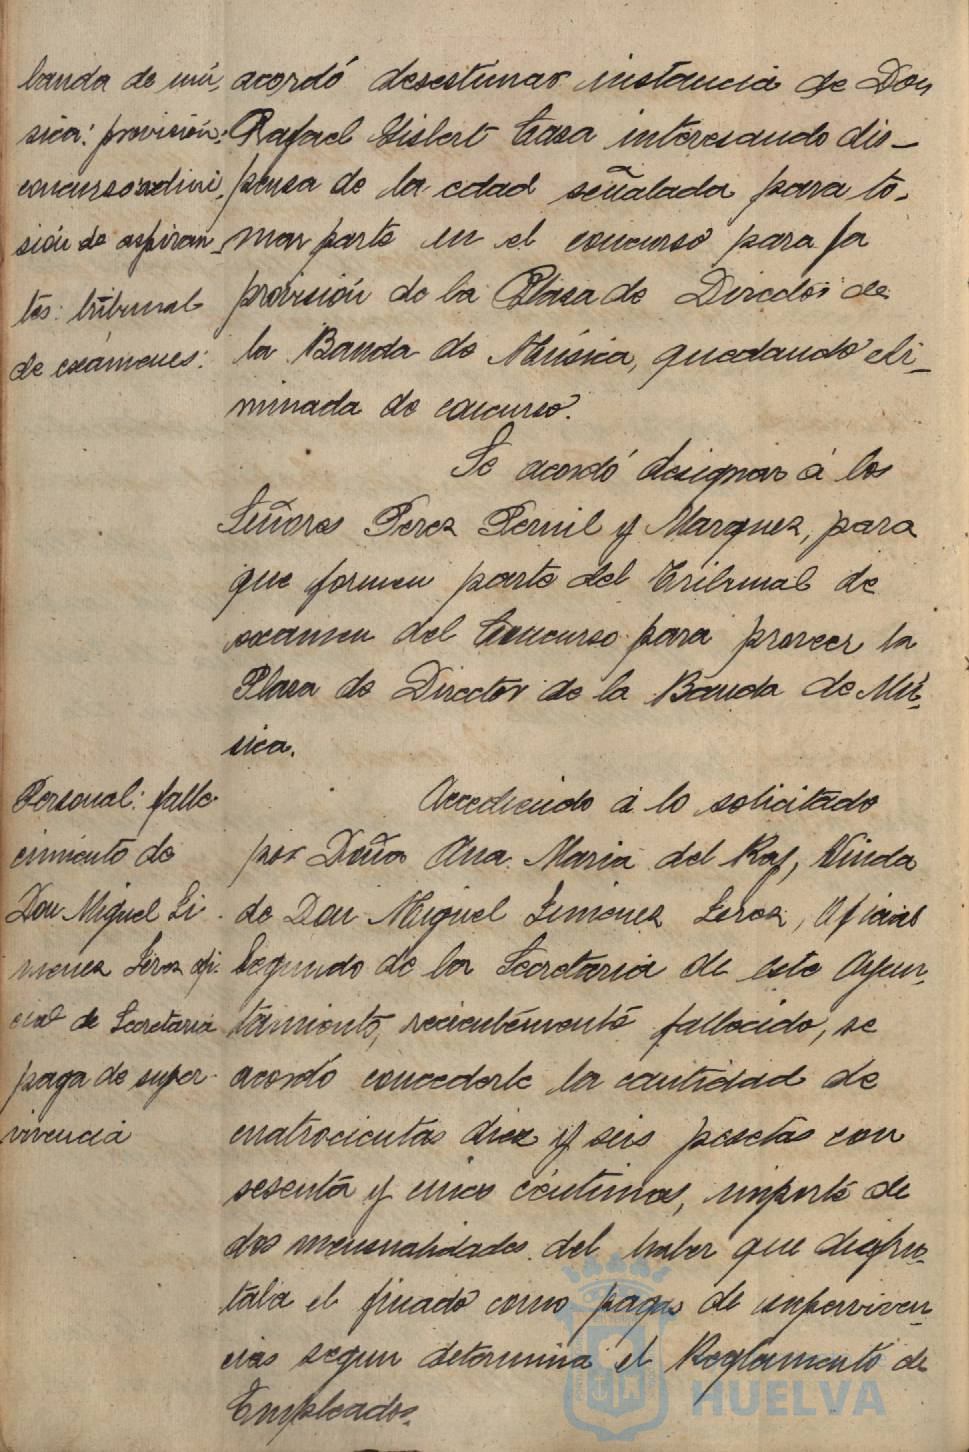 banda de mú-
sica: provisión:
concurso: admi
sión de aspiran-
tes: tribunal
de exámenes:
acordó desestimar instancia de Don
Rafael Gisbert Casa interesando dis-
pensa de la edad señalada para to-
mar parte en el concurso para la
provisión de la Plaza de Director de
la Banda de Música, quedando eli-
minada de concurso.
Se acordó designar á los
Señores Perez Pernil y Marquez, para
que formen parte del Tribunal de
examen del Concurso para proveer la
Plaza de Director de la Banda de Mú-
sica.
Personal: falle-
cimiento de
Don Miguel Gi-
menez Geroz ofi-
cial de Secretaria
paga de super-
vivencia
Accediendo á lo solicitado
por Doña Ana Maria del Rey, Viuda
de Don Miguel Gimenez Geroz, Oficial
Segundo de la Secretaria de este Ayun-
tamiento, recientemente fallecido, se
acordó concederle la cantidad de
cuatrocientas diez y seis pesetas con
sesenta y cinco céntimos, importe de
dos mensualidades del haber que disfru-
taba el finado como pagas de supervivien-
cias segun determina el Reglamento de
Empleados.
HUELVA